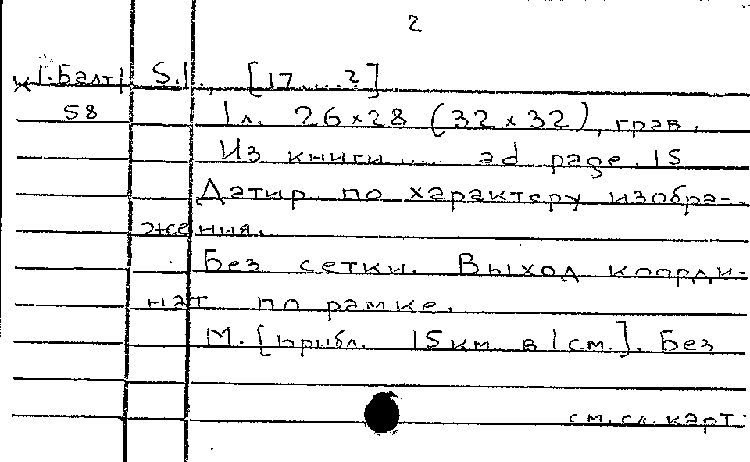 2
К 1.Балт S.l., [17....?]
58 1 л. 26×28 (32×32), грав.
Из книги.... ad page. 15
Датир по характеру изобра-
жения.
Без сетки. Выход коорди-
нат по рамке.
М. [прибл. 15 км в 1 см.]. Без
см. сл. карт.